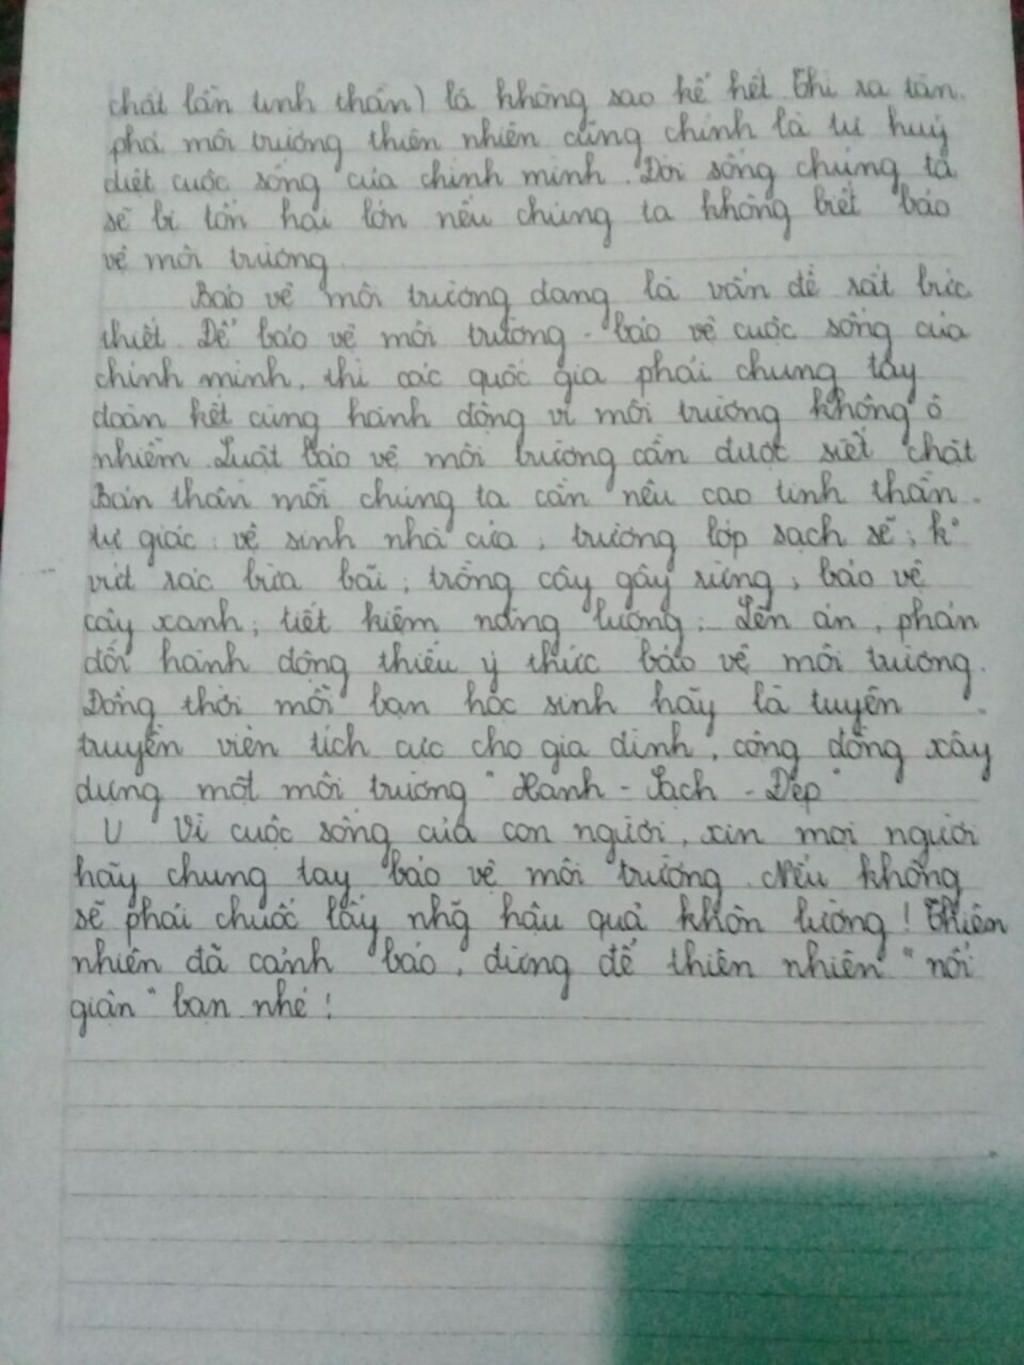 chất lẫn tinh thần) là không sao kể hết. Thì ra tàn
phá môi trường thiên nhiên cũng chính là tự huỷ
diệt cuộc sống của chính mình. Đời sống chúng ta
sẽ bị tổn hại lớn nếu chúng ta không biết bảo
vệ môi trường.
Bảo vệ môi trường đang là vấn đề rất bức
thiết. Để bảo vệ môi trường - bảo vệ cuộc sống của
chính mình, thì các quốc gia phải chung tay
đoàn kết cùng hành động vì môi trường không ô
nhiễm. Luật bảo vệ môi trường cần được siết chặt
Bản thân mỗi chúng ta cần nêu cao tinh thần
tự giác: vệ sinh nhà cửa, trường lớp sạch sẽ; k°
vứt rác bừa bãi; trồng cây gây rừng, bảo vệ
cây xanh; tiết kiệm năng lượng; Lên án, phản
đối hành động thiếu ý thức bảo vệ môi trường.
Đồng thời mỗi bạn học sinh hãy là tuyên
truyền viên tích cực cho gia đình, cộng đồng xây
dựng một môi trường "Xanh - Sạch - Đẹp"
Vì cuộc sống của con người, xin mọi người
hãy chung tay bảo vệ môi trường. Nếu không
sẽ phải chuốc lấy nhg̃ hậu quả khôn lường! Thiên
nhiên đã cảnh báo, đừng để thiên nhiên "nổi
giận" bạn nhé!